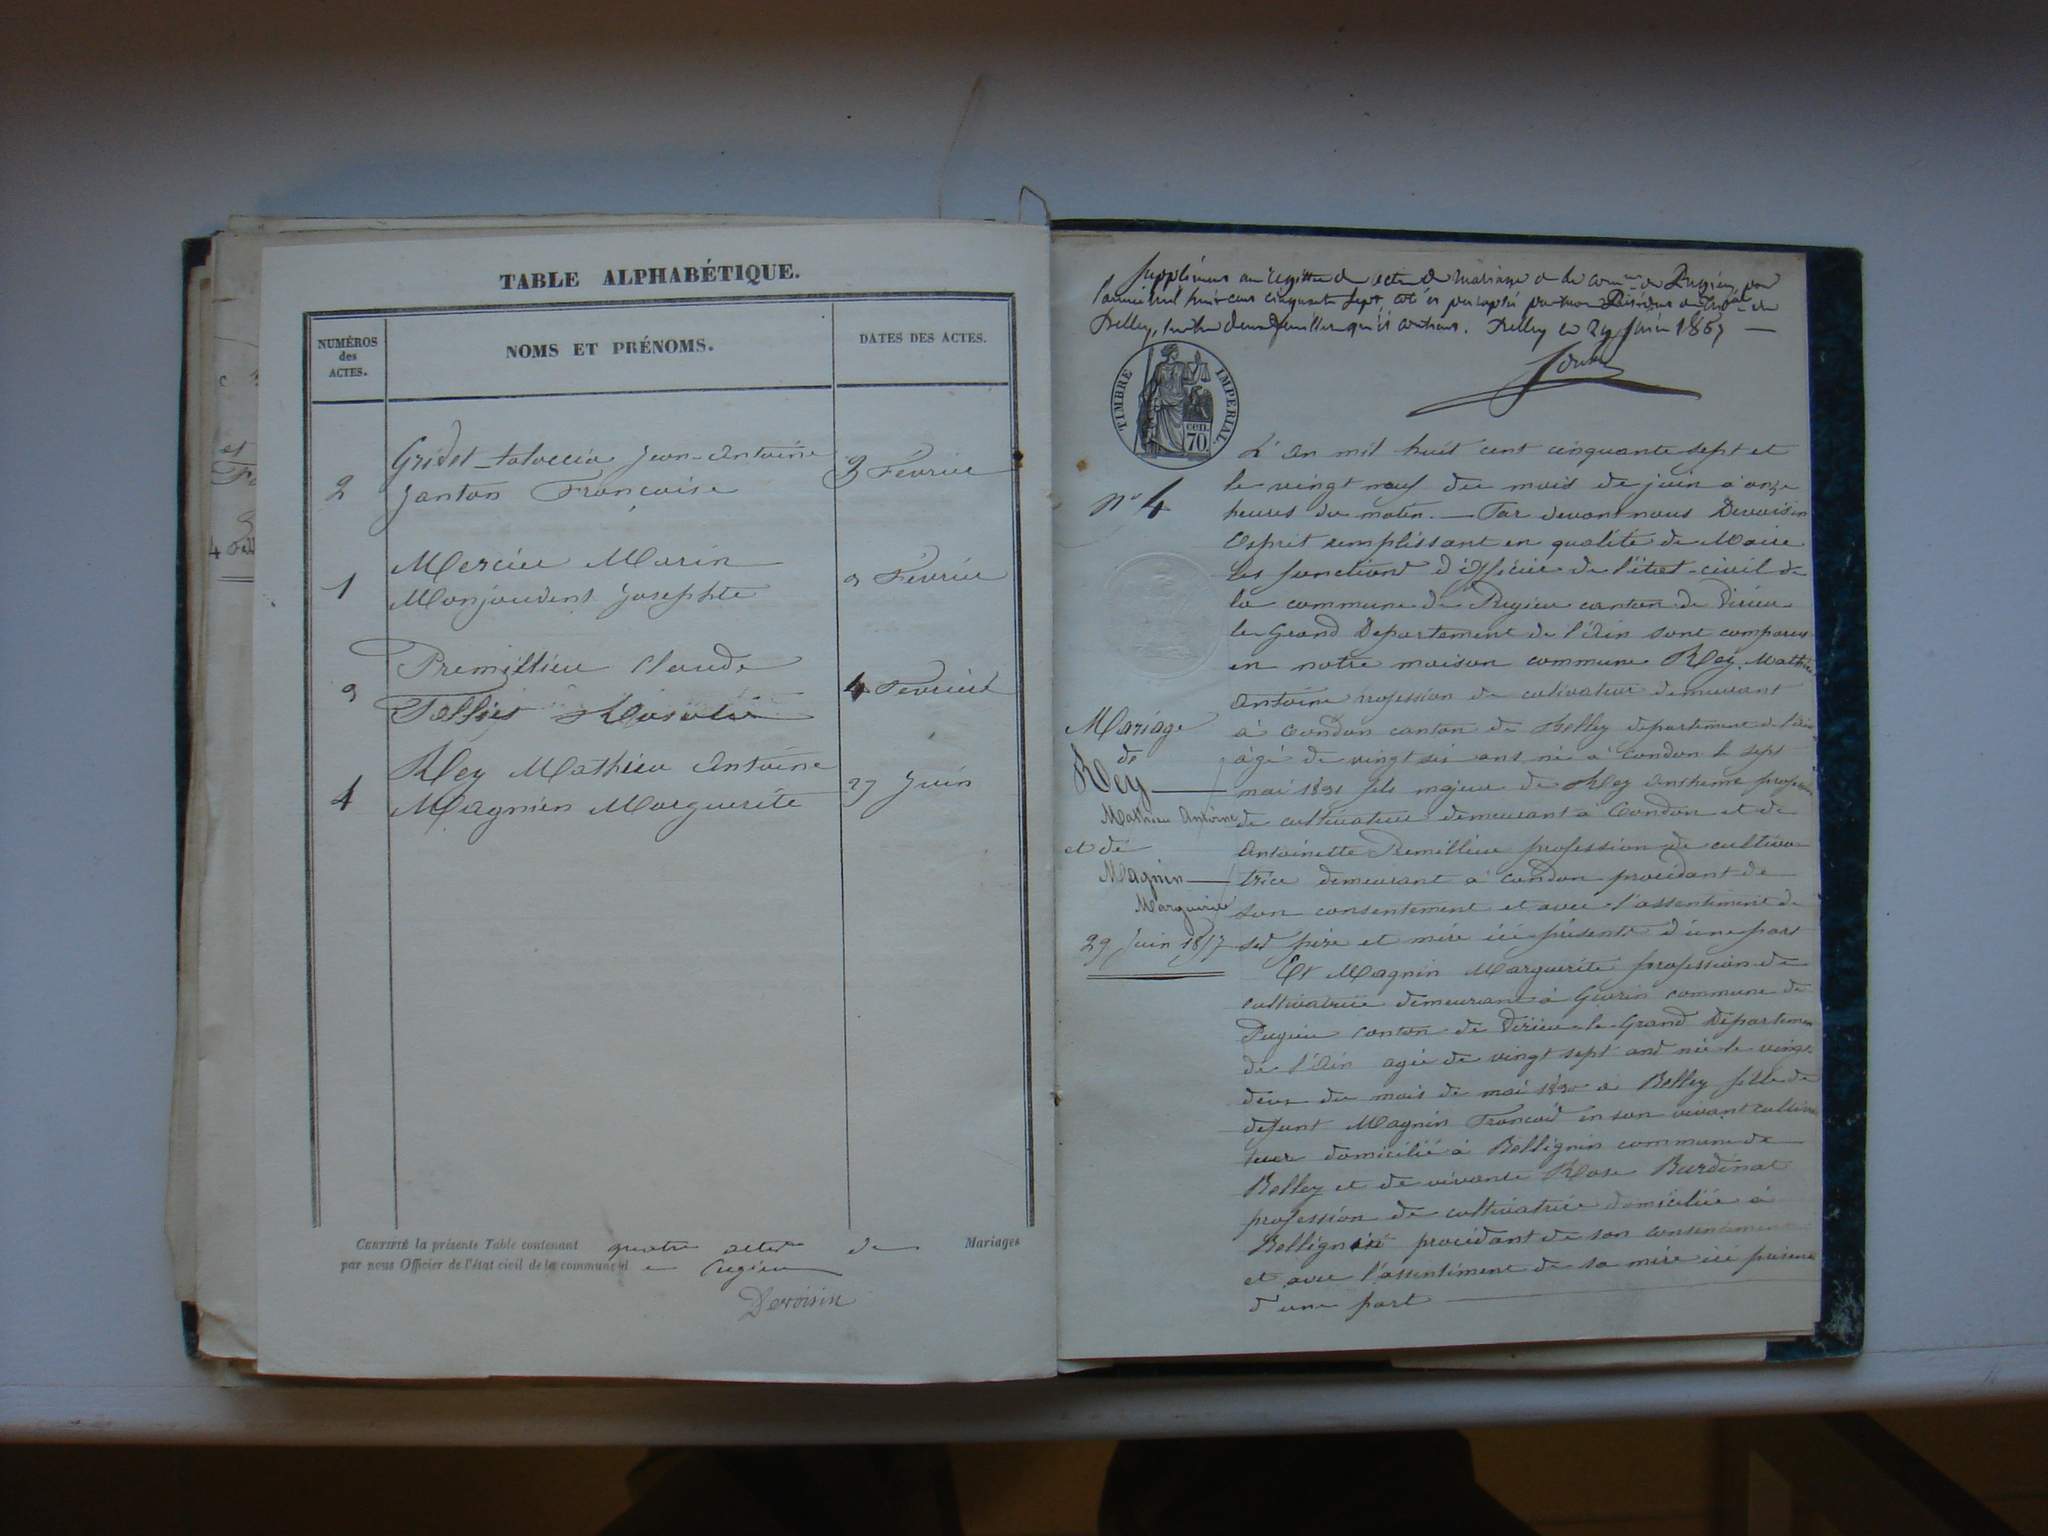 TABLE ALPHABÉTIQUE.
NUMÉROS
des
ACTES.
NOMS ET PRÉNOMS.
DATES DES ACTES.
Jean-Antoine
2 Janton Françoise 3 Février
Mercier Marin
1 Monjoudent Josephte 2 Février
Premillieu Claude
3 Tellier 4 Février
Rey Mathieu Antoine
4 Magnien Marguerite 29 Juin
CERTIFIÉ la présente Table contenant quatre actes de Mariages
par nous Officier de l'état civil de la commune d
Devoisin
Supplément au registre de actes de Mariage de la com.ne de Pugieu, pour
l'année mil huit cent cinquante sept, coté et paraphé par nous Président
Belley, Belley le 29 Juin 1857
TIMBRE IMPERIAL.
cen.
70.
N° 4
Mariage
de
Rey
Mathieu Antoine
et de
Magnin
Marguerite
29 Juin 1857
L'An mil huit cent cinquante sept et
le vingt neuf du mois de juin à onze
heures du matin. — Par devant nous Devoisin
Esprit remplissant en qualité de Maire
les fonctions d'Officier de l'état-civil de
la commune de Pugieu canton de Virieu
le Grand Departement de l'Ain sont comparus
en notre maison commune Rey Mathieu
Antoine profession de cultivateur demeurant
à Condon canton de Belley departement de l'Ain
âgé de vingt six ans né à Condon le sept
mai 1831 fils majeur de Rey Anthelme profession
de cultivateur demeurant à Condon et de
Antoinette Premillieu profession de cultiva-
trice demeurant à Condon procédant de
son consentement et avec l'assentiment de
ses père et mère ici présents d'une part
Et Magnin Marguerite profession de
cultivatrice demeurant à commune de
Pugieu canton de Virieu-le-Grand Département
de l'Ain agée de vingt sept ans née le vingt
deux du mois de mai 1830 à Belley fille de
défunt Magnin Francois en son vivant cultiva
teur domicilié à Bellignin commune de
Belley et de vivante Rose Burdinat
profession de cultivatrice domiciliée à
Bellignin procédant de son consentement
et avec l'assentiment de sa mère ici présente
d'une part